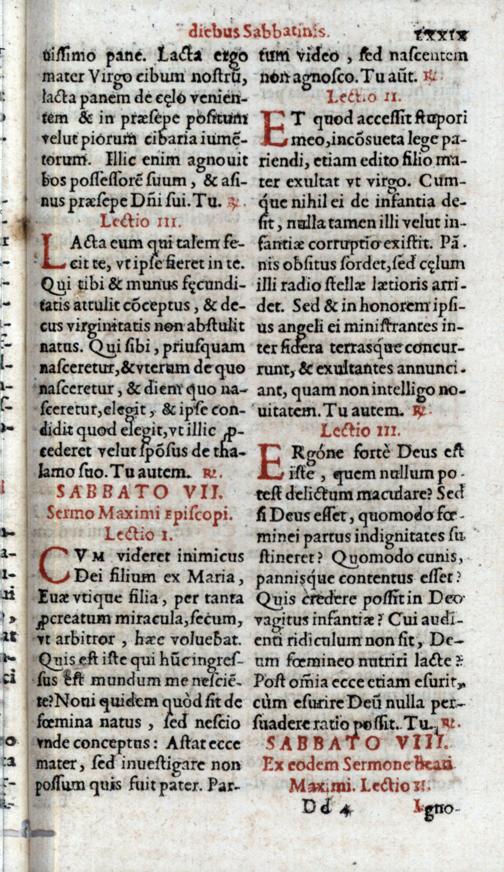 diebus Sabbatinis.
lxxix
tissimo pane. Lacta ergo
mater Virgo cibum nostrū,
lacta panem de cęlo venien-
tem & in præsepe positum
velut piorum cibaria iumē-
torum. Illic enim agnouit
bos possessorē suum, & asi-
nus præsepe Dñi sui. Tu. ℟.
Lectio III.
LActa eum qui talem fe-
cit te, vt ipse fieret in te.
Qui tibi & munus fęcundi-
tatis attulit cōceptus, & de-
cus virginitatis non abstulit
natus. Qui sibi, priusquam
nasceretur, & vterum de quo
nasceretur, & diem quo na-
sceretur, elegit, & ipse con-
didit quod elegit, vt illic ꝓ-
cederet velut spōsus de tha-
lamo suo. Tu autem. ℟.
SABBATO VII.
Sermo Maximi Episcopi.
Lectio I.
CVM videret inimicus
Dei filium ex Maria,
Euæ vtique filia, per tanta
ꝓcreatum miracula, secum,
vt arbitror, hæc voluebat.
Quis est iste qui hūc ingres-
sus est mundum me nesciē-
te? Noui quidem quòd sit de
fœmina natus, sed nescio
vnde conceptus: Astat ecce
mater, sed inuestigare non
possum quis fuit pater. Par-
tum video, sed nascentem
non agnosco. Tu aūt. ℟.
Lectio II.
ET quod accessit stupori
meo, incōsueta lege pa-
riendi, etiam edito filio ma-
ter exultat vt virgo. Cum-
que nihil ei de infantia de-
sit, nulla tamen illi velut in-
fantiæ corruptio existit. Pā-
nis obsitus sordet, sed cęlum
illi radio stellæ lætioris arri-
det. Sed & in honorem ipsi-
us angeli ei ministrantes in-
ter sidera terrasq́ue concur-
runt, & exultantes annunci-
ant, quam non intelligo no-
uitatem. Tu autem. ℟.
Lectio III.
ERgóne fortè Deus est
iste, quem nullum po-
test delictum maculare? Sed
si Deus esset, quomodo fœ-
minei partus indignitates su
stineret? Quomodo cunis,
pannisq́ue contentus esset?
Quis credere possit in Deo
vagitus infantiæ? Cui audi-
enti ridiculum non sit, De-
um fœmineo nutriri lacte?
Post om̄ia ecce etiam esurit,
cùm esurire Deū nulla per-
suadere ratio possit. Tu. ℟.
SABBATO VIII.
Ex eodem Sermone Beati
Maximi. Lectio I.
Dd 4
Igno-